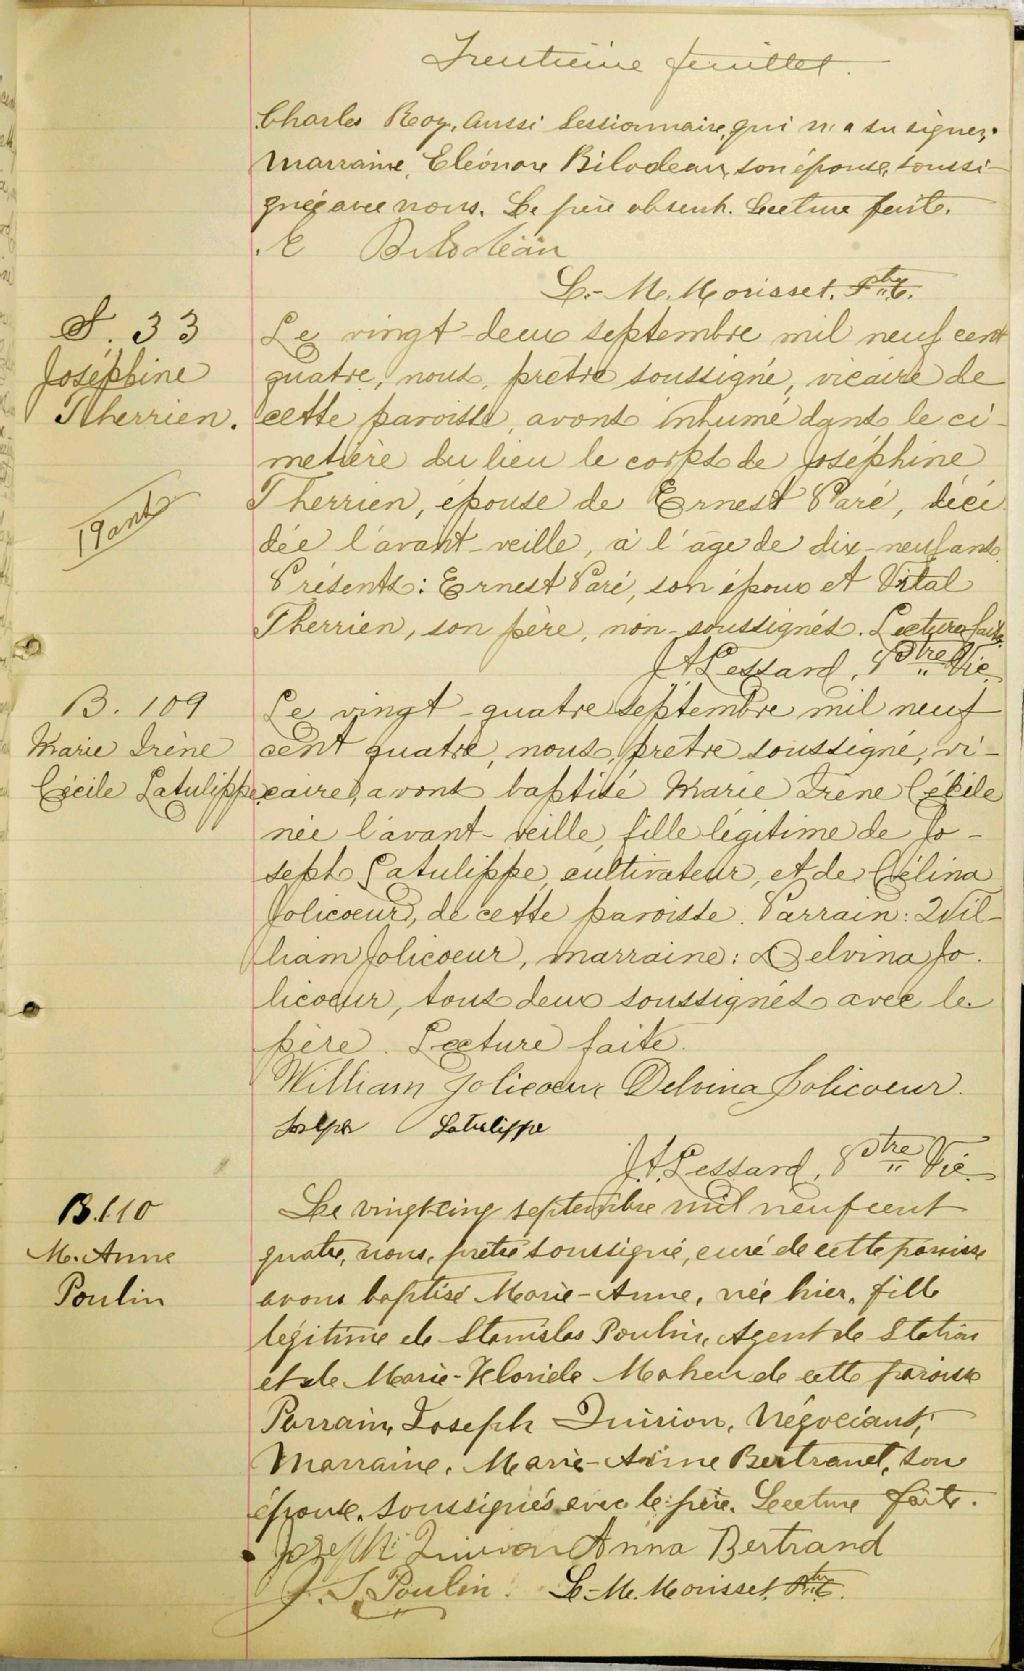 Trentième feuillet.
Charles Roy, aussi Cessionnaire, qui n'a su signer;
Marraine, Eléonore Bilodeau, son épouse, soussi-
gnée avec nous. Le père absent. Lecture faite.
E Bilodeau
L.-M. Morisset, Ptre.
S. 33
Joséphine
Therrien.
19 ans
Le vingt-deux septembre mil neuf cent
quatre, nous, prêtre soussigné, vicaire de
cette paroisse, avons inhumé dans le ci-
metière du lieu le corps de Joséphine
Therrien, épouse de Ernest Paré, décé
dée l'avant-veille, à l'âge de dix-neuf ans.
Présents: Ernest Paré, son époux et Vital
Therrien, son père, non-soussignés. Lecture faite.
J A Lessard, Ptre Vic.
B. 109
Marie Irène
Cécile Latulippe
Le vingt-quatre septembre mil neuf
cent quatre, nous, prêtre soussigné, vi-
caire, avons baptisé Marie Irène Cécile
née l'avant-veille, fille légitime de Jo-
seph Latulippe, cultivateur, et de Célina
Jolicoeur, de cette paroisse. Parrain: Wil-
liam Jolicoeur, marraine: Delvina Jo.
licoeur, tous deux soussignés avec le
père. Lecture faite.
William Jolicoeur Delvina Jolicoeur.
Joseph Latulippe
J.A. Lessard, Ptre Vic.
B. 110
M. Anne
Poulin
Le vingt-cinq septembre mil neuf cent
quatre, nous, prêtre soussigné, curé de cette paroisse
avons baptisé Marie-Anne, née hier, fille
légitime de Stanislas Poulin, Agent de Station
et de Marie-Floride Maheu de cette paroisse
Parrain, Joseph Quirion, Négociant;
Marraine, Marie-Anne Bertrand, son
épouse, soussignés avec le père. Lecture faite.
Joseph Quirion Anna Bertrand
J. S. Poulin. L-M. Morisset, Ptre.